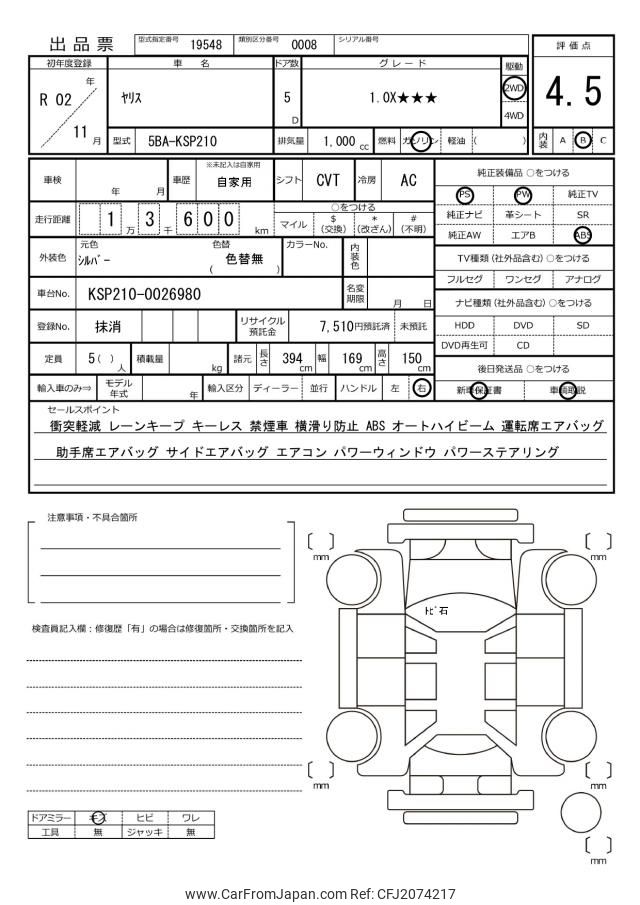 出品票 型式指定番号 19548 類別区分番号 0008 シリアル番号
評価点
4.5
内装 A B C
初年度登録 車名 ドア数 グレード 駆動
R 02 年 11 月
ヤリス 5 D 1.0X★★★ 2WD
4WD
型式 5BA-KSP210 排気量 1,000 cc 燃料 ガソリン 軽油 ( )
車検 年 月 車歴 ※未記入は自家用 自家用 シフト CVT 冷房 AC
走行距離 1 万 3 千 6 0 0 km
○をつける
マイル $ (交換) * (改ざん) # (不明)
外装色 元色 シルバー 色替 ( 色替無 ) カラーNo. 内装色
車台No. KSP210-0026980 名変期限 月 日
登録No. 抹消 リサイクル預託金 7,510円預託済 未預託
定員 5 ( ) 人 積載量 kg 諸元 長さ 394 cm 幅 169 cm 高さ 150 cm
輸入車のみ⇒ モデル年式 年 輸入区分 ディーラー 並行 ハンドル 左 右
純正装備品 ○をつける
PS PW 純正TV
純正ナビ 革シート SR
純正AW エアB ABS
TV種類 (社外品含む) ○をつける
フルセグ ワンセグ アナログ
ナビ種類 (社外品含む) ○をつける
HDD DVD SD
DVD再生可 CD
後日発送品 ○をつける
新車保証書 車輌取説
セールスポイント
衝突軽減 レーンキープ キーレス 禁煙車 横滑り防止 ABS オートハイビーム 運転席エアバッグ
助手席エアバッグ サイドエアバッグ エアコン パワーウィンドウ パワーステアリング
注意事項・不具合箇所
検査員記入欄：修復歴「有」の場合は修復箇所・交換箇所を記入
[ ] mm
[ ] mm
トビ石
[ ] mm
[ ] mm
[ ] mm
ドアミラー キズ ヒビ ワレ
工具 無 ジャッキ 無
www.CarFromJapan.com Ref: CFJ2074217